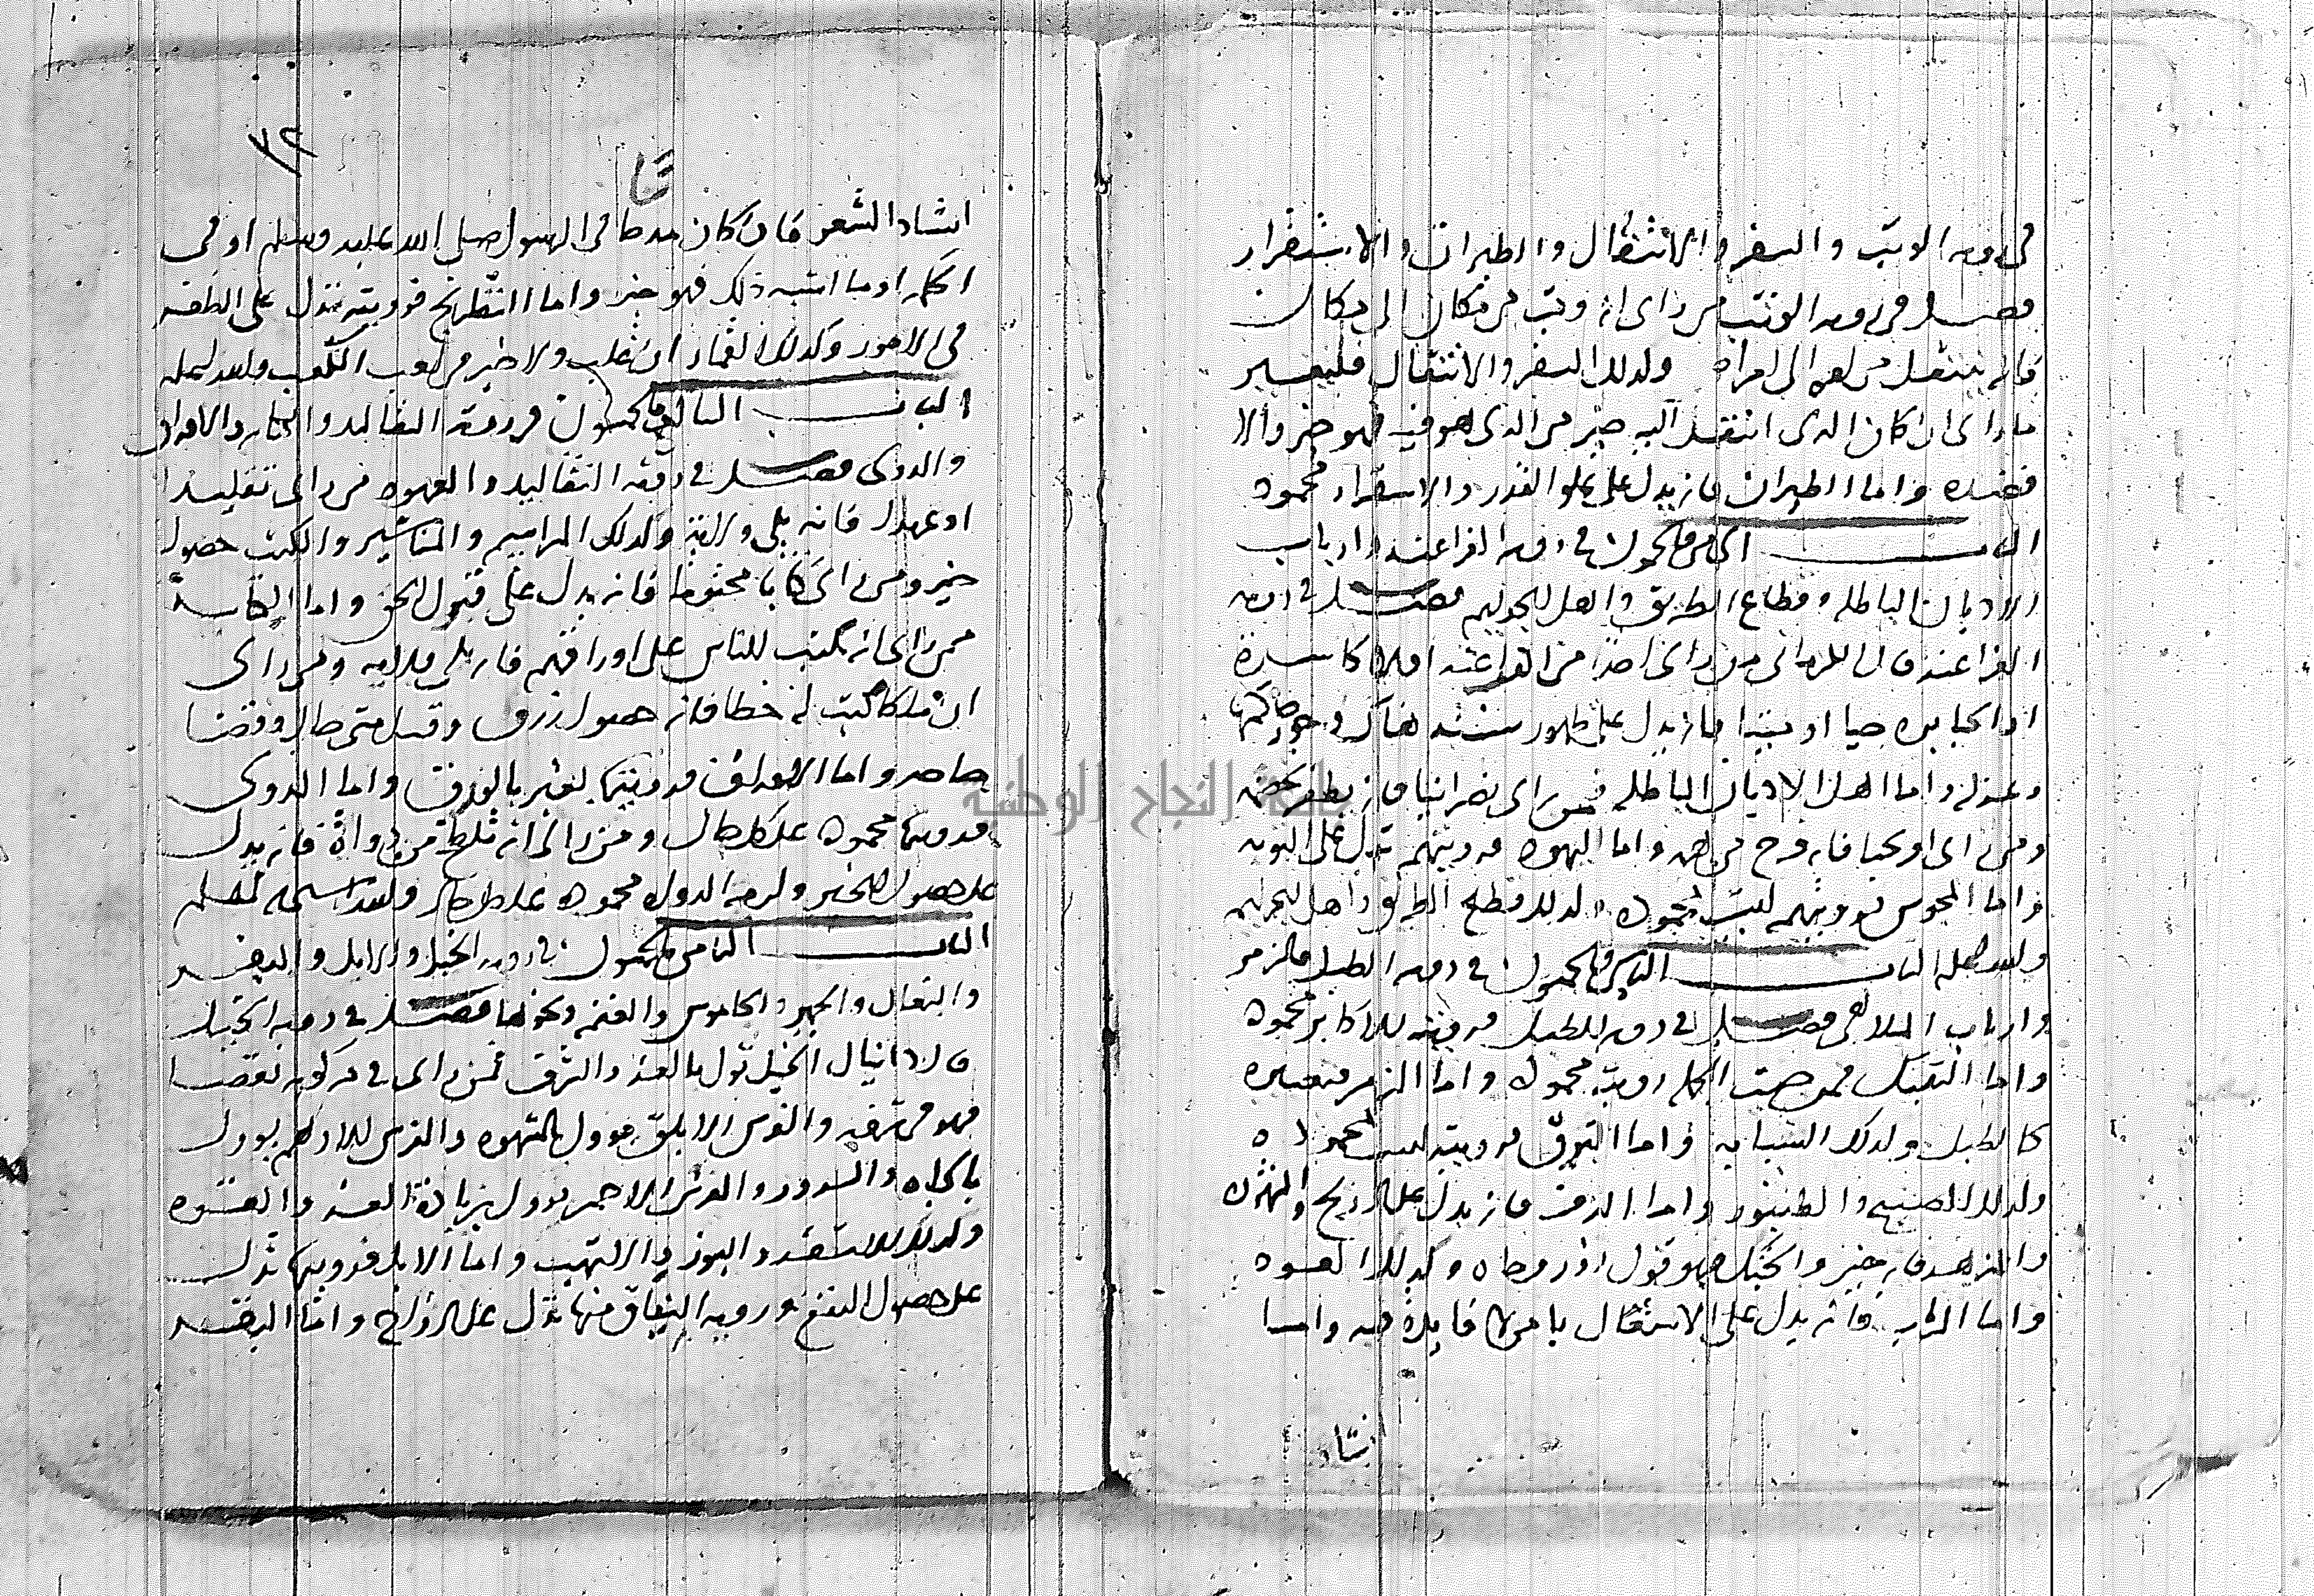 في روية الوثب والسفر والانتقال والطيران والاستقرار
فصل في روية الوثب من راى انه وثب من مكان الى مكان
فانه ينتقل من امر الى امراه وكذلك السفر والانتقال فليعتبر
ما راى ان كان الذى انتقل اليه خير من الذى هو فيه فهو خير والا
فضده واما الطيران فانه يدل على علو القدر والاستقرار محمود
الباب الخامس والخمسون في روية الفراعنه وارباب
الاديان الباطله وقطاع الطريق واهل الجرايم فصل في روية
الفراعنه قال الكرمانى من راى احدا من الفراعنه او الاكاسرة
او الجبابره حيا او ميتا فانه يدل على ظهور سنته هناك في جور حاكمها
وعزله واما اهل الاديان الباطله فمن راى نصرانيا فانه يظفر بخصمه
ومن راى او كيا فانه فرح من هم واما اليهود فرويتهم تدل على التوبه
واما المجوس فرويتهم ليست بمحموده وكذلك قطع الطريق واهل الجرايم
والله اعلم الباب السادس والخمسون في روية الطبل والزمر
وارباب الملاهى فصل في روية الطبل فرويته للاكابر محموده
واما التقبيل فمن حيث الجمله رويته محموده واما الزمر فتعبيره
كالطبل وكذلك الشبابه واما البوق فرويته ليست محموده
وكذلك الصنج والطنبور واما الدف فانه يدل على الريح والمهرن
والمزهر فانه خير والجنك فهو قول زور وجاه وكذلك العود
واما الرباب فانه يدل على الاشتغال بامر لا فايدة فيه واما
انشاد
٣٢
انشاد الشعر فان كان مدحا في الرسول صلى الله عليه وسلم او في
الحكمه او ما اشبه ذلك فهو خير واما الشطرنج فرويته تدل على الظفر
في الامور وكذلك القمار ان غلب ولا خير في لعب الكعب والله اعلم
الباب السابع والخمسون في روية التقاليد والكتابه والاوراق
والدوى فصل في روية التقاليد والعهود من راى تقليدا
او عهدا فانه يلي ولاية وكذلك المراسيم والمناشير والكتب حصول
خير ومن راى كتابا مختوما فانه يدل على قبول الحق واما الكتابة
فمن راى انه يكتب للناس على اوراقهم فانه يلي ولايه ومن راى
ان ملكا كتب له خطا فانه حصول رزق وقيل متى طال وقضا
حاجه واما الاوراق فرويتها تعبر بالورق واما الدوى
فرويتها محموده على كل حال ومن راى انه تلطخ من دواة فانه يدل
على حصول الخير وروية الدواه محموده على كل حال والله سبحانه اعلم
الباب الثامن والخمسون في روية الخيل والابل والبقر
والبغال والحمير والجاموس والغنم ونحوها فصل في روية الخيل
قال دانيال الخيل تول بالعز والشرف فمن راى في مركوبه نقصا
فهو في شرفه والفرس الابلق موول بالشهره والفرس الادهم يوول
بالجاه والسودد والفرس الاحمر يوول بزيادة العز والقوه
وكذلك الاشقر والبوز والاشهب واما الابل فرويتها تدل
على حصول النفع وروية النياق منها تدل على الزواج واما البقر
جامعة النجاح الوطنية